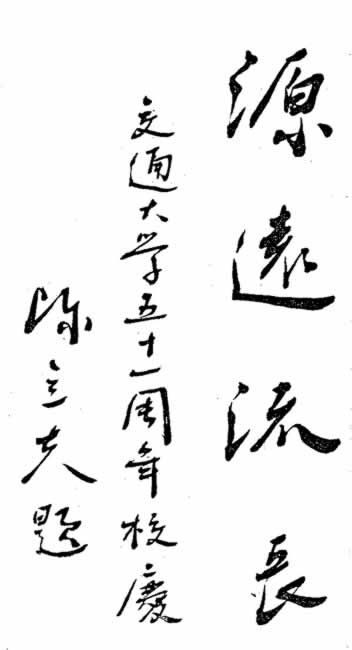 源遠流長
交通大学五十一周年校慶
陳立夫題